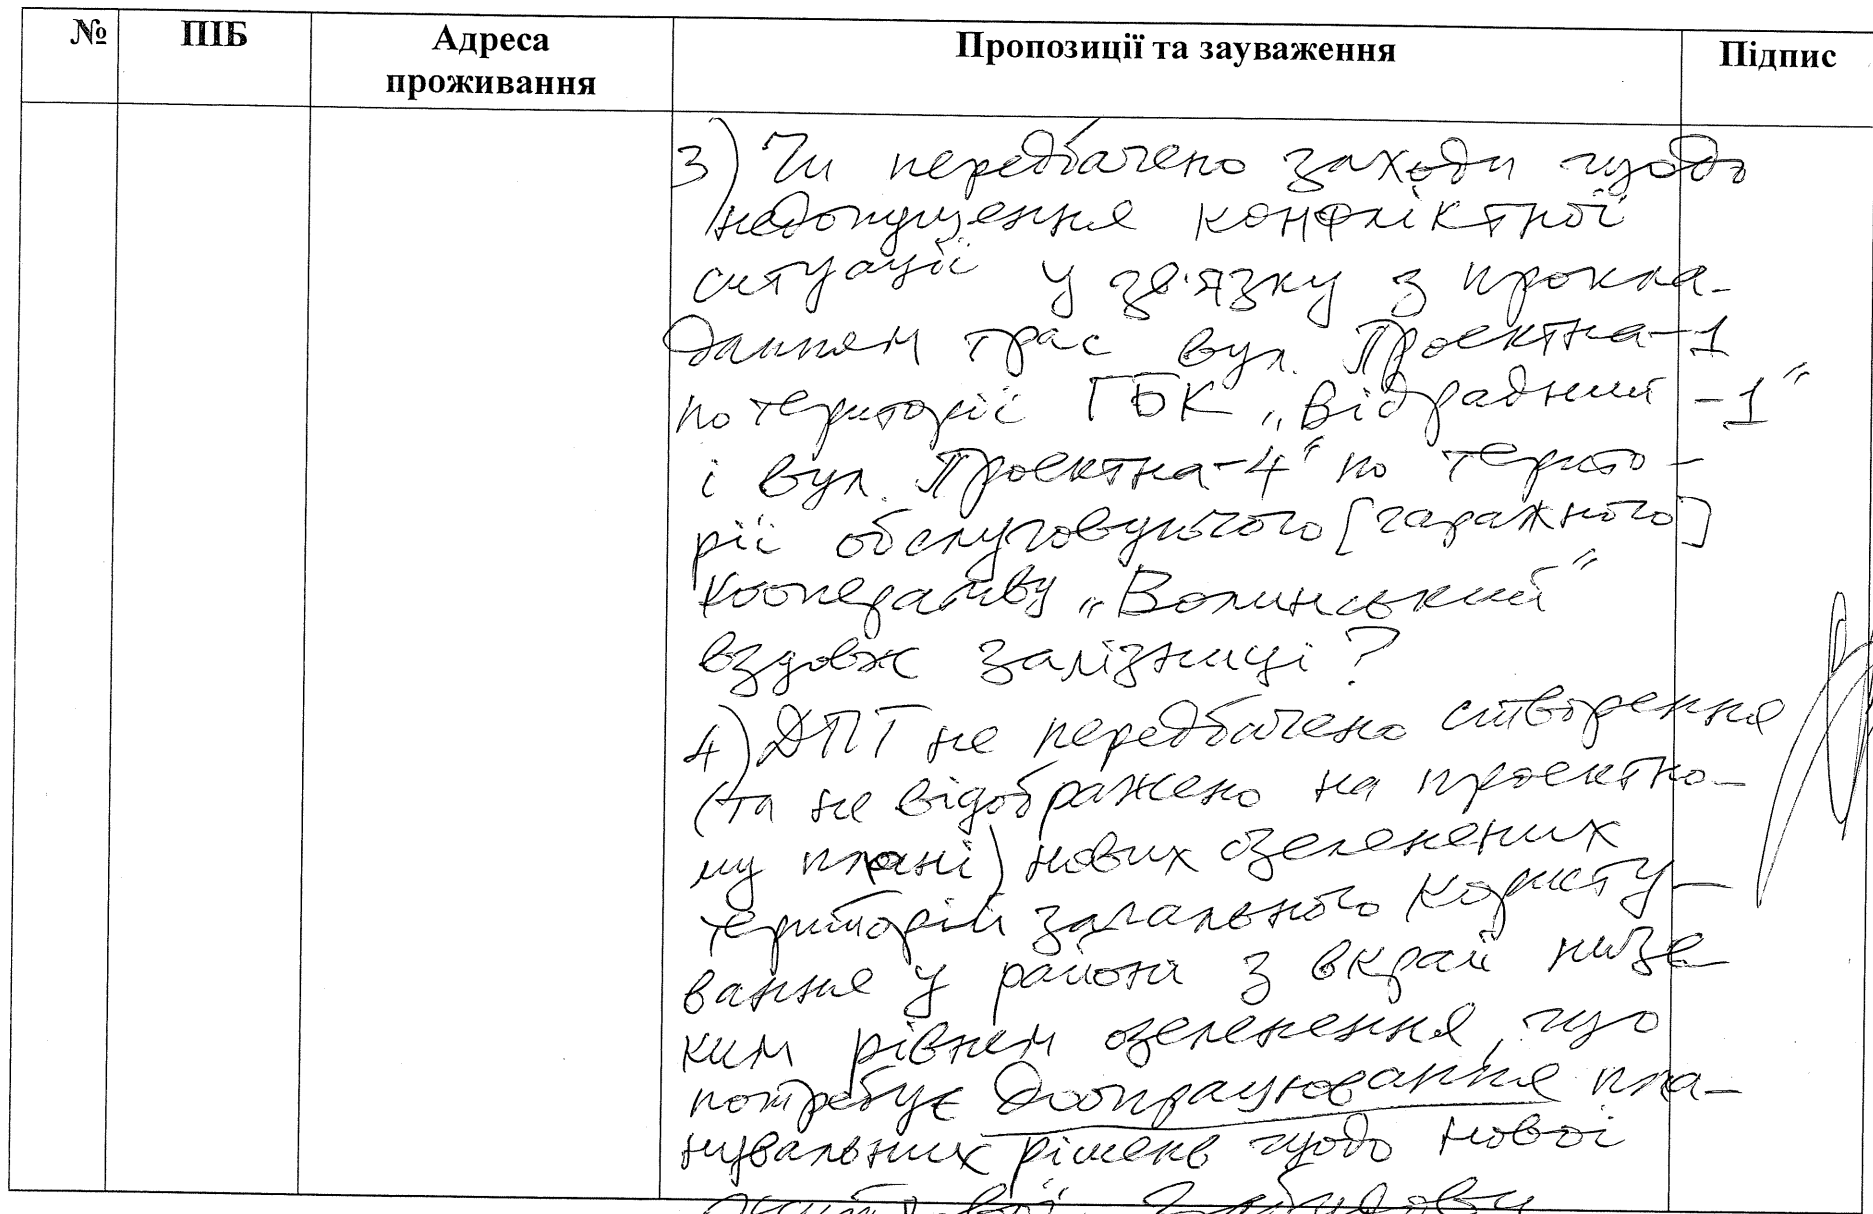 № ПІБ Адреса проживання Пропозиції та зауваження Підпис
3) Чи передбачено заходи щодо
недопущення конфліктної
ситуації у зв'язку з прокла-
данням трас вул. Проектна-1
по території ГБК „Відрадний -1“
і вул. Проектна-4“ по терито-
рії обслуговуючого [гаражного]
кооперативу „Волинський“
вздовж залізниці?
4) ДПТ не передбачено створення
(та не відображено на проектно-
му плані) нових озеленених
територій загального користу-
вання у районі з вкрай низь-
ким рівнем озеленення, що
потребує доопрацювання пла-
нувальних рішень щодо нової
житлової забудови